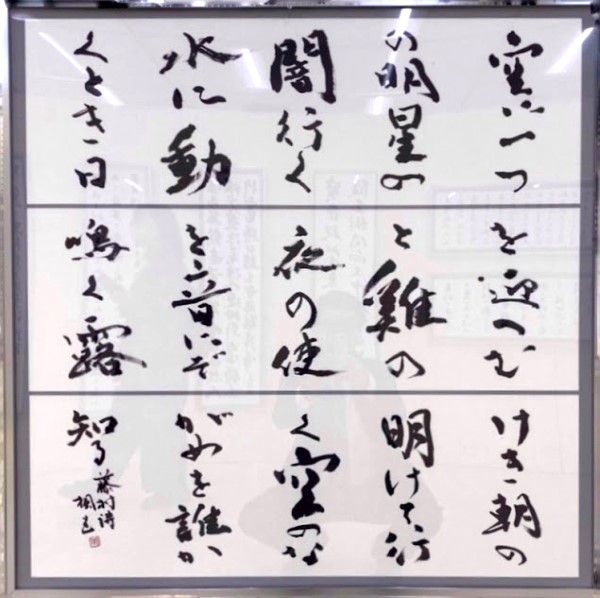 空に一つ
の明星の
闇行く
水に動
くとき 日
を迎へむ
と雞の
夜の使
を音にぞ
鳴く 露
けき朝の
明けて行
く空のな
がめを誰か
知る
藤村詩